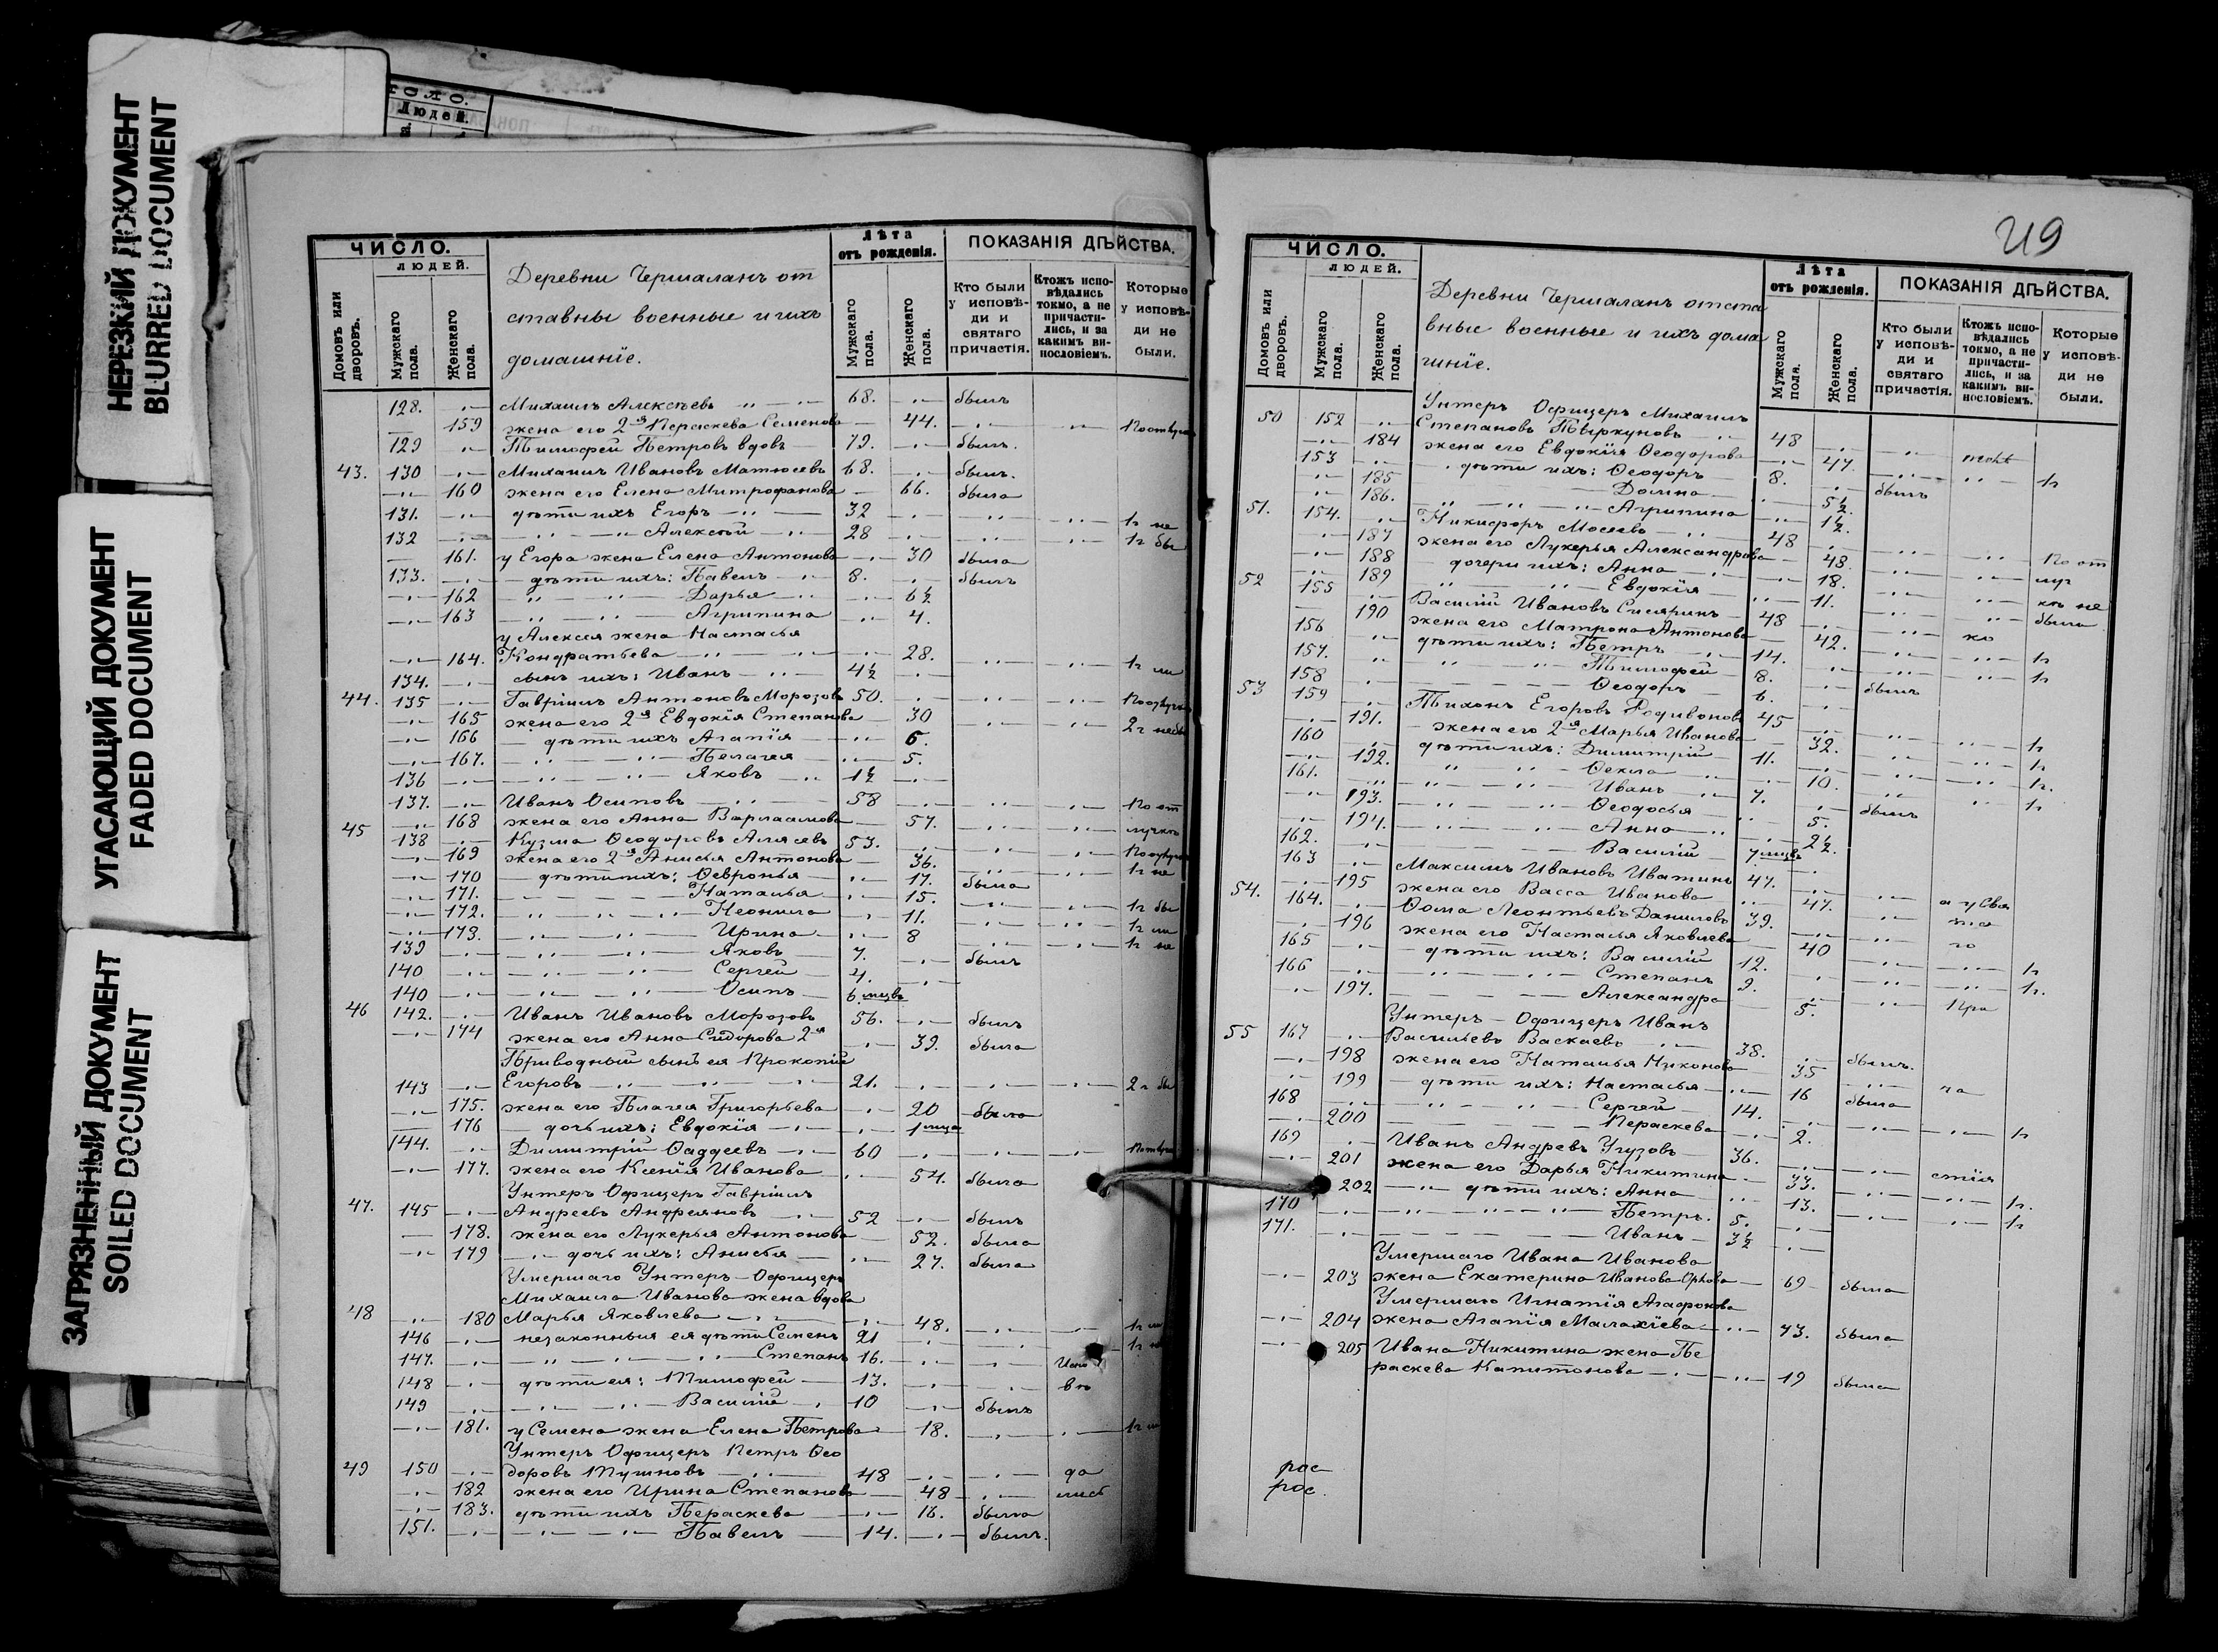 НЕРЕЗКИЙ ДОКУМЕНТ
BLURRED DOCUMENT
УГАСАЮЩИЙ ДОКУМЕНТ
FADED DOCUMENT
ЗАГРЯЗНЕННЫЙ ДОКУМЕНТ
SOILED DOCUMENT
Людей.
ЧИСЛО.
ЛЮДЕЙ.
Домовъ или дворовъ.
Мужскаго пола.
Женскаго пола.
Деревни Чермаланъ от
ставные военные и ихъ
домашніе.
Лѣта отъ рожденія.
Мужскаго пола.
Женскаго пола.
ПОКАЗАНІЯ ДѢЙСТВА.
Кто были у исповѣди и святаго причастія.
Ктожъ исповѣдались токмо, а не причастились, и за какимъ винословіемъ.
Которые у исповѣди не были.
128. Михаилъ Алексѣевъ 68. былъ
159 жена его 2я Параскева Семенова 44.
129 Тимофей Петровъ вдовъ 79. былъ.
43. 130 Михаилъ Ивановъ Матюсевъ 68. былъ.
160 жена его Елена Митрофанова 66. была
131. дѣти ихъ Егоръ 32 1г не
132 Алексѣй 28 1г бы
161. у Егора жена Елена Антонова 30 была
133. дѣти ихъ: Павелъ 8. былъ
162 Дарья 6½
163 Агрипина 4.
у Алексея жена Настасья
164. Кондратьева 28. 1г
134. сынъ ихъ: Иванъ 4½
44. 135 Гавріилъ Антоновъ Морозовъ 50.
165 жена его 2я Евдокія Степанова 30 2г небы
166 дѣти ихъ Агапія 6.
167. Пелагея 5.
136 Яковъ 1½
137. Иванъ Осиповъ 58 По от
168 жена его Анна Варлаамова 57. лучкѣ
45 138 Кузма Ѳеодоровъ 53.
169 жена его 2я Анисья Антонова 36. 1г не
170 дѣти ихъ: Ѳевронья 17. была
171. Наталья 15. 1г бы
172. Неонила 11. 1г
173. Ирина 8 1г не
139 Яковъ 7. былъ
140 Сергей 4.
140 Осипъ 6 мцвъ
46 142. Иванъ Ивановъ Морозовъ 56. былъ
174 жена его Анна Сидорова 2я 39. была
Приводный сынъ ея Прокопій
143 Егоровъ 21. 2г бы
175. жена его Пелагея Григорьева 20 была
176 дочь ихъ: Евдокія 1 мца
144. Димитрій Ѳаддеевъ 60
177. жена его Ксенія Иванова 54. была
Унтеръ Офицеръ Гавріилъ
47. 145 Андреевъ Андреяновъ 52 былъ
178. жена его Лукерья Антонова 52. была
179 дочь ихъ: Анисья 27. была
Умершаго Унтеръ-Офицера
Михаила Иванова жена вдова
48 180 Марья Яковлева 48.
146 незаконныя ея дѣти Семенъ 21
147. Степанъ 16.
148 дѣти ея: Тимофей 13.
149 Василій 10 былъ
181. у Семена жена Елена Петрова 18.
Унтеръ Офицеръ Петръ Ѳео
49 150 доровъ Тушновъ 48 до
182 жена его Ирина Степанова 48
183. дѣти ихъ Параскева 16. была
151. Павелъ 14. былъ.
ЧИСЛО.
ЛЮДЕЙ.
Домовъ или дворовъ.
Мужскаго пола.
Женскаго пола.
Деревни Чермаланъ отста
вные военные и ихъ дома
шніе.
Лѣта отъ рожденія.
Мужскаго пола.
Женскаго пола.
ПОКАЗАНІЯ ДѢЙСТВА.
Кто были у исповѣди и святаго причастія.
Ктожъ исповѣдались токмо, а не причастились, и за какимъ винословіемъ.
Которые у исповѣди не были.
Унтеръ Офицеръ Михаилъ
50 152 Степановъ Пыркуновъ 48
184 жена его Евдокія Ѳеодорова 47.
153 дѣти ихъ: Ѳеодоръ 8. былъ 1г
185 Домна 5½.
186. Агрипина 1½.
51. 154. Никифоръ Мосеевъ 48 По от
187 жена его Лукерья Александрова 48. луч
188 дочери ихъ: Анна 18. кѣ не
189 Евдокія 11. была
52 155 Василій Ивановъ 48 ко
190 жена его Матрона Антонова 42. 1г
156 дѣти ихъ: Петръ 14. 1г
157. Тимофей 8. былъ
158 Ѳеодоръ 6.
53 159 Тихонъ Егоровъ Родивоновъ 45 1г
191. жена его 2я Марья Иванова 32. 1г
160 дѣти ихъ: Димитрій 11. 1г.
192. Ѳекла 10. 1г
161. Иванъ 7. былъ
193. Ѳеодосья 5.
194. Анна 2½.
162. Василій 7 мцвъ
163 Максимъ Ивановъ Иватинъ 47.
195 жена его Васса Иванова 47.
54. 164. Ѳома Леонтьевъ Даниловъ 39.
196 жена его Настасья Яковлева 40
165 дѣти ихъ: Василій 12. 1г
166 Степанъ 9. 1г.
197. Александра 5.
Унтеръ-Офицеръ Иванъ
55 167 Васильевъ Васкаевъ 38. былъ.
198 жена его Наталья Никонова 35
199 дѣти ихъ: Настасья 16 была
168 Сергей 14. 1г
200 Параскева 2.
169 Иванъ Андревъ Угузовъ 36. стія
201 жена его Дарья Никитина 33. 1г.
202 дѣти ихъ: Анна 13. 1г
170 Петръ. 5.
171. Иванъ 3½
Умершаго Ивана Иванова
203 жена Екатерина Иванова Орлова 69 была
Умершаго Игнатія Агафонова
204 жена Агапія Малахіева 73. была
205 Ивана Никитина жена Пе
раскева Капитонова 19 была
рос
рос.